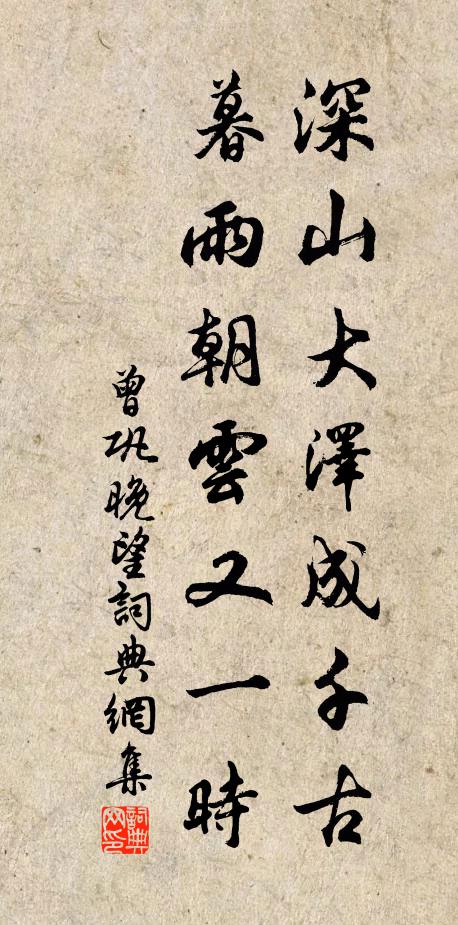 深山大澤成千古
暮雨朝雲又一時
曾巩晚望詞典網集
詞典網印